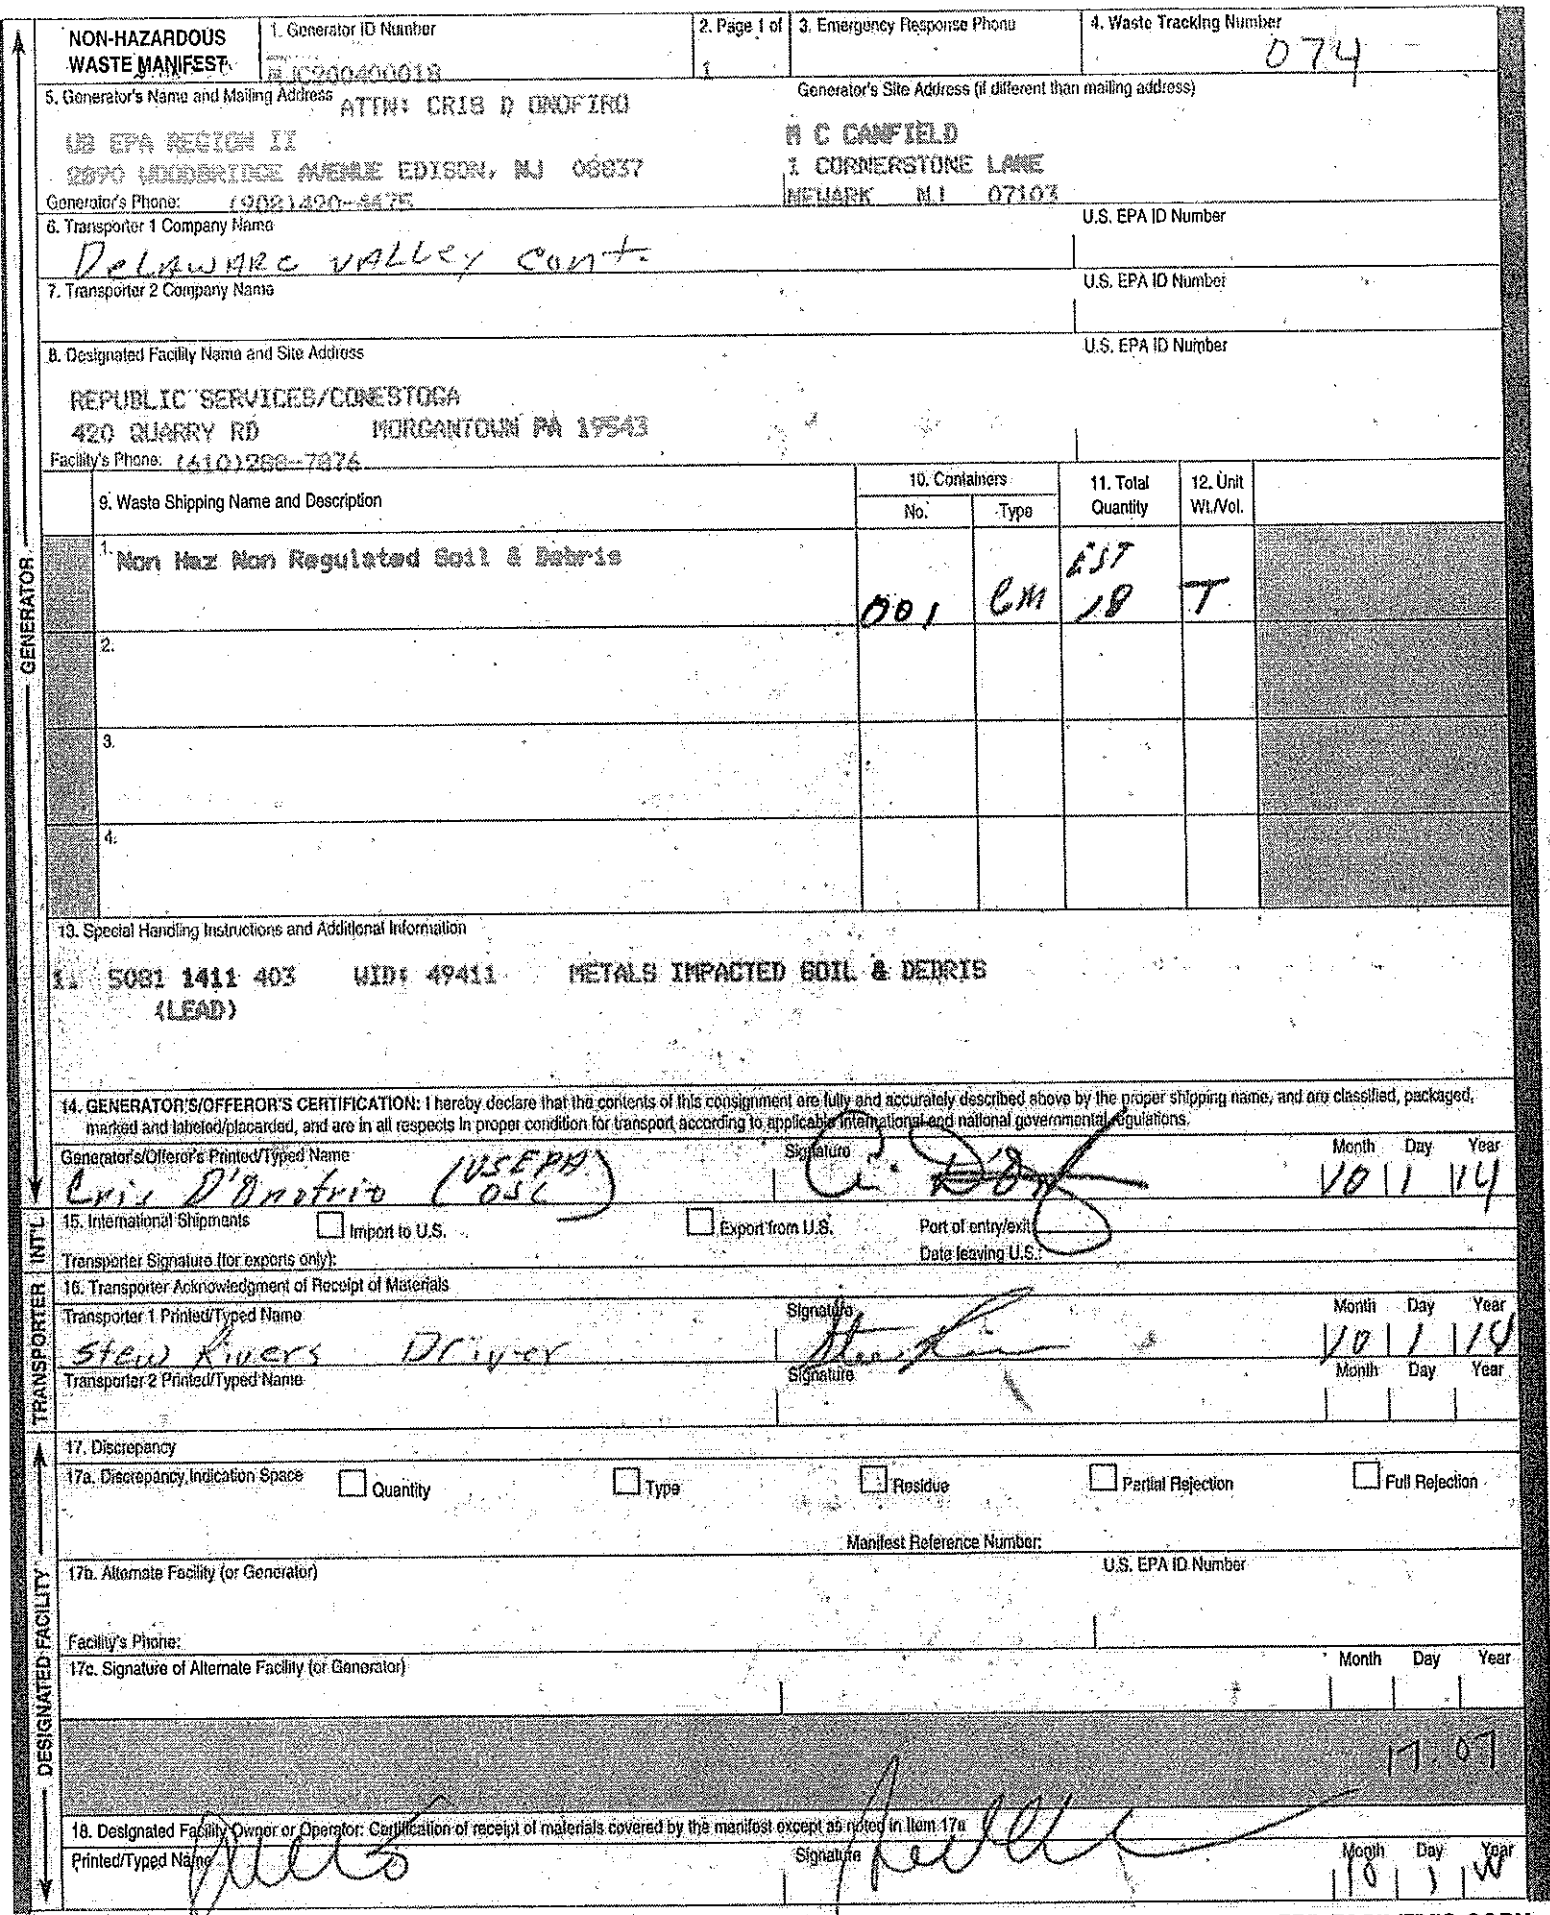 NON-HAZARDOUS WASTE MANIFEST
1. Generator ID Number
NJC200400018
2. Page 1 of
1
3. Emergency Response Phone
4. Waste Tracking Number
074
5. Generator's Name and Mailing Address
ATTN: CRIS D ONOFIRO
US EPA REGION II
2890 WOODBRIDGE AVENUE EDISON, NJ 08837
Generator's Phone: (908)420-4475
Generator's Site Address (if different than mailing address)
M C CANFIELD
1 CORNERSTONE LANE
NEWARK NJ 07103
6. Transporter 1 Company Name
Delaware Valley Cont.
U.S. EPA ID Number
7. Transporter 2 Company Name
U.S. EPA ID Number
8. Designated Facility Name and Site Address
U.S. EPA ID Number
REPUBLIC SERVICES/CONESTOGA
420 QUARRY RD MORGANTOWN PA 19543
Facility's Phone: (610)288-7876
GENERATOR
9. Waste Shipping Name and Description
10. Containers
No.
Type
11. Total Quantity
12. Unit Wt./Vol.
1. Non Haz Non Regulated Soil & Debris
001 CM EST 18 T
2.
3.
4.
13. Special Handling Instructions and Additional Information
1. 5081 1411 403 WID: 49411 METALS IMPACTED SOIL & DEBRIS
(LEAD)
14. GENERATOR'S/OFFEROR'S CERTIFICATION: I hereby declare that the contents of this consignment are fully and accurately described above by the proper shipping name, and are classified, packaged,
marked and labeled/placarded, and are in all respects in proper condition for transport according to applicable international and national governmental regulations.
Generator's/Offeror's Printed/Typed Name
Signature
Month Day Year
Cris D'Onofrio (USEPA OSC)
10 1 14
INT'L
15. International Shipments
Import to U.S.
Export from U.S.
Port of entry/exit:
Transporter Signature (for exports only):
Date leaving U.S.:
TRANSPORTER
16. Transporter Acknowledgment of Receipt of Materials
Transporter 1 Printed/Typed Name
Signature
Month Day Year
Stew Rivers Driver
10 1 14
Transporter 2 Printed/Typed Name
Signature
Month Day Year
DESIGNATED FACILITY
17. Discrepancy
17a. Discrepancy Indication Space
Quantity
Type
Residue
Partial Rejection
Full Rejection
Manifest Reference Number:
17b. Alternate Facility (or Generator)
U.S. EPA ID Number
Facility's Phone:
17c. Signature of Alternate Facility (or Generator)
Month Day Year
17.07
18. Designated Facility Owner or Operator: Certification of receipt of materials covered by the manifest except as noted in Item 17a
Printed/Typed Name
Signature
Month Day Year
10 1